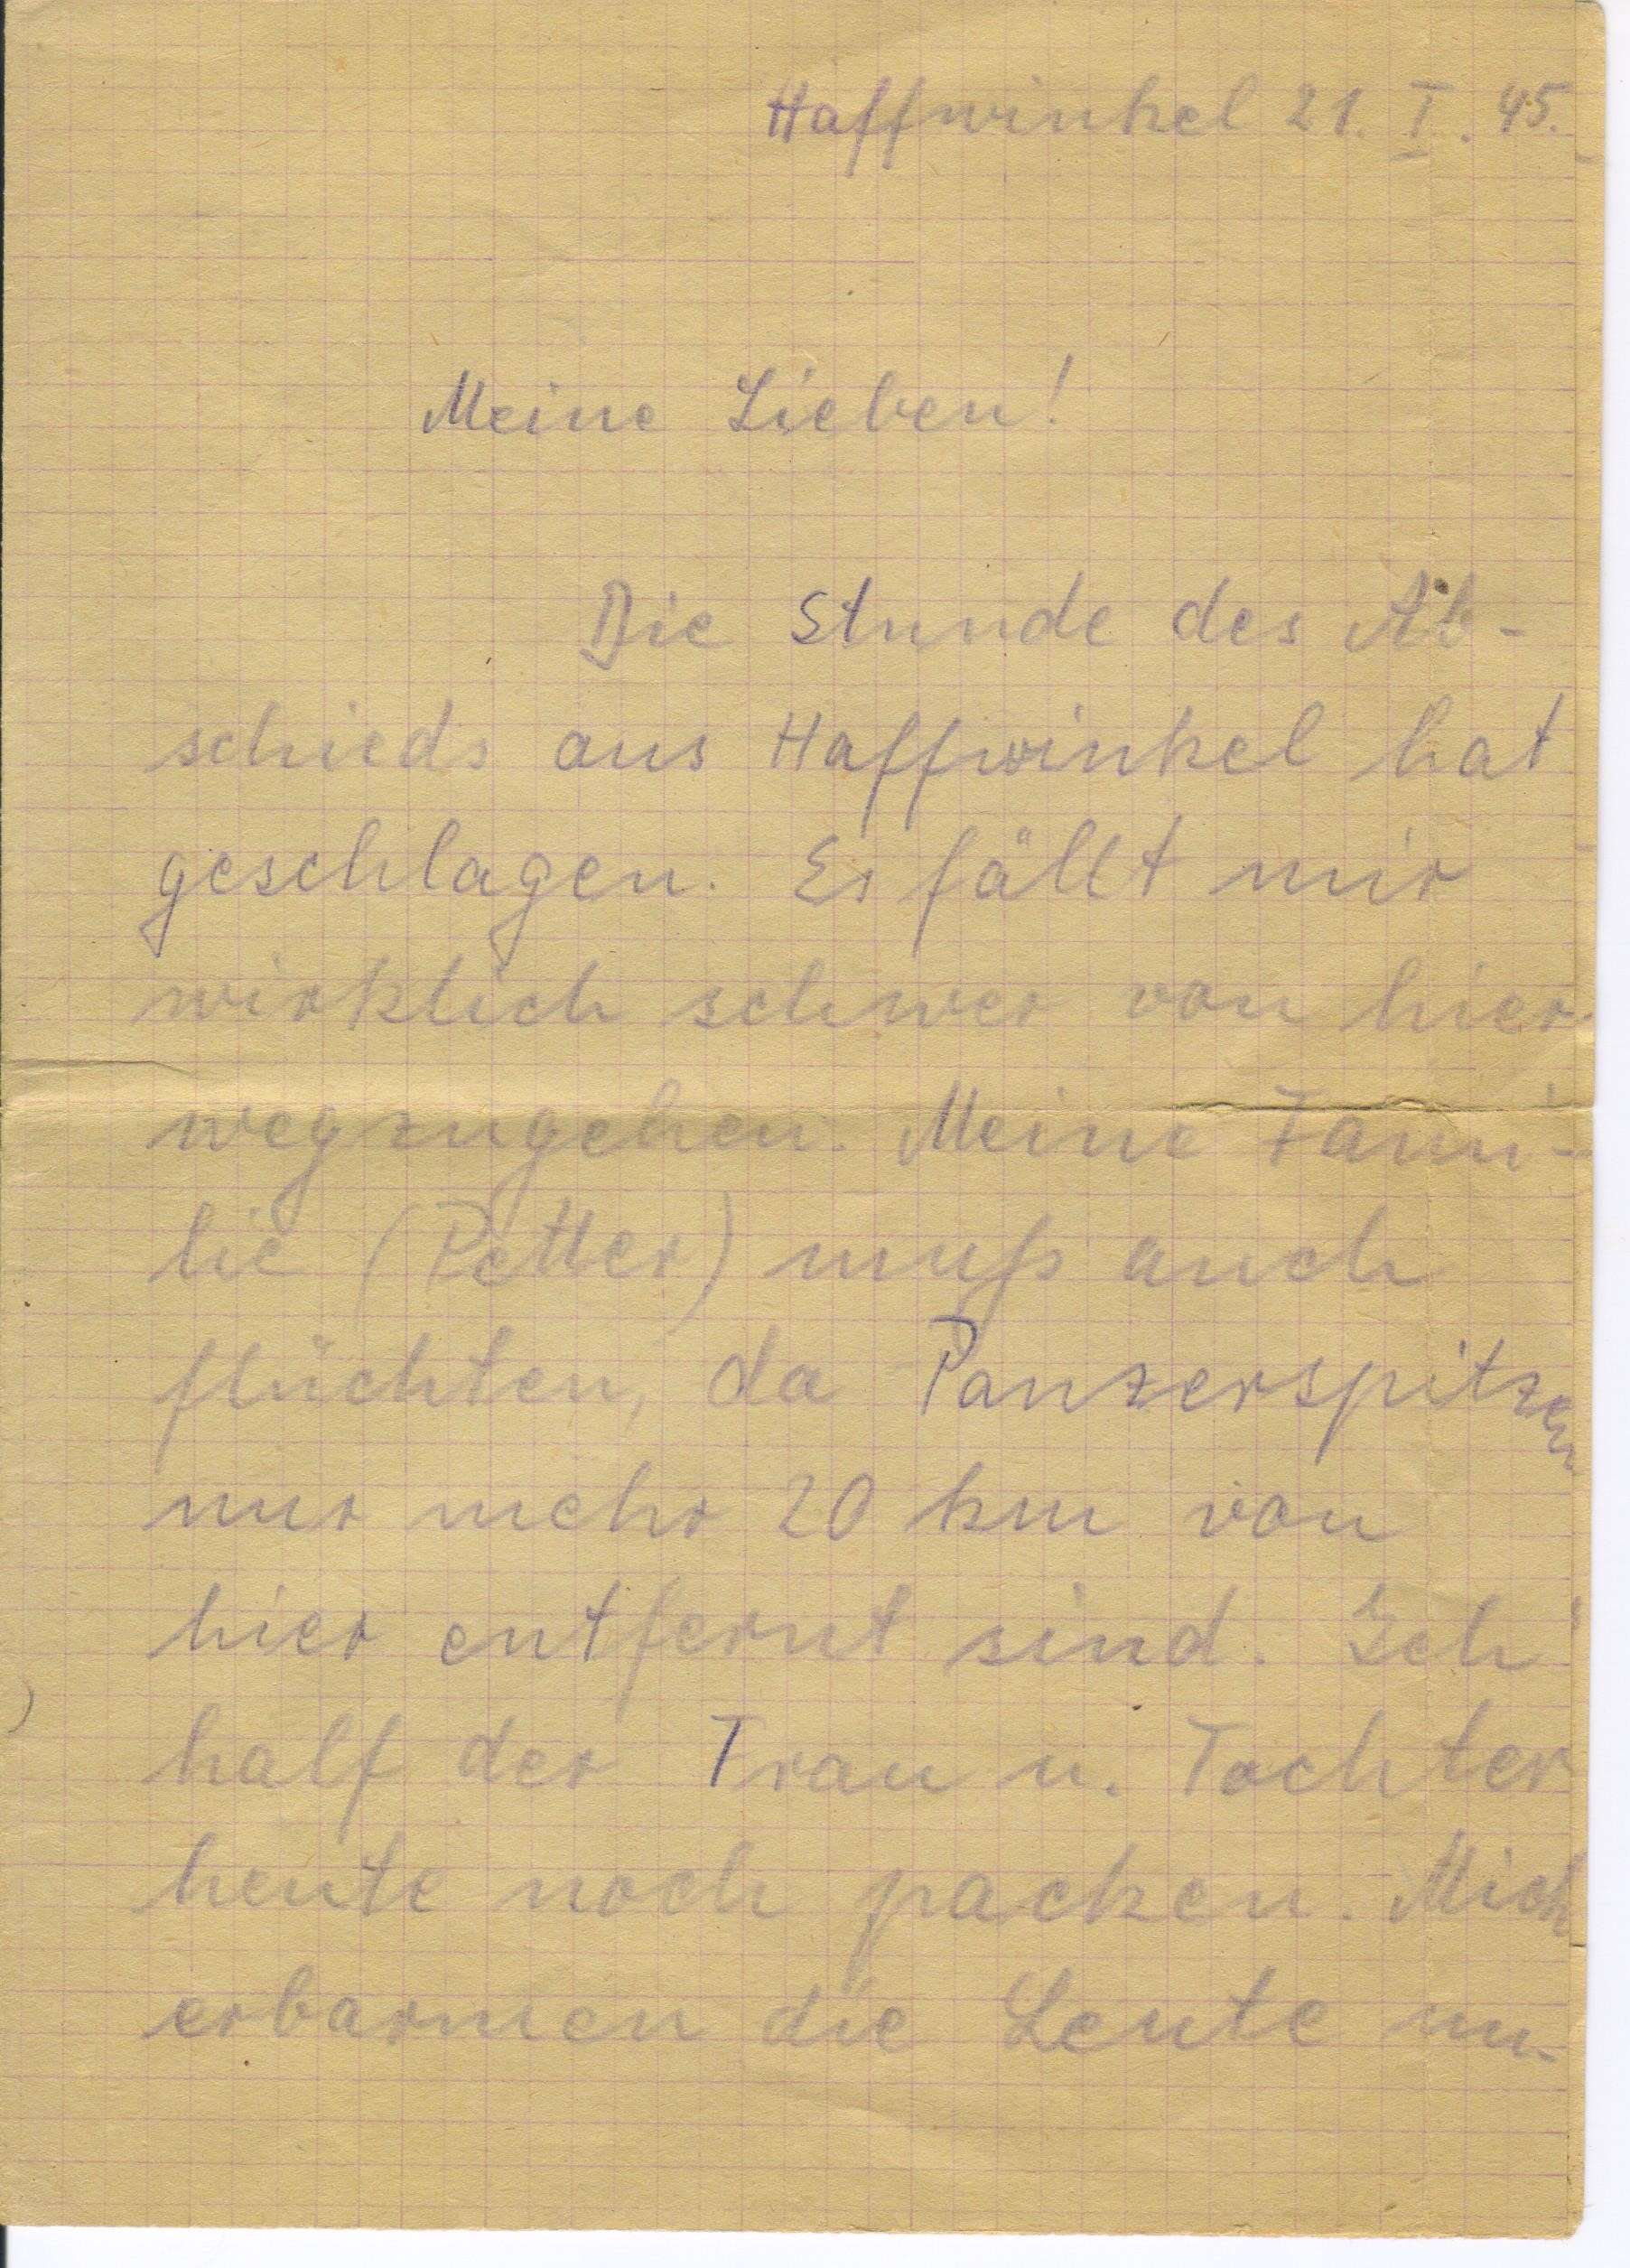 Haffwinkel 21. I. 45.
Meine Lieben!
Die Stunde des Ab-
schieds aus Haffwinkel hat
geschlagen. Es fällt mir
wirklich schwer von hier
wegzugehen. Meine Fami-
lie (Petter) muß auch
flüchten, da Panzerspitzen
nur mehr 20 km von
hier entfernt sind. Ich
half der Frau u. Tochter
heute noch packen. Mich
erbarmen die Leute un-